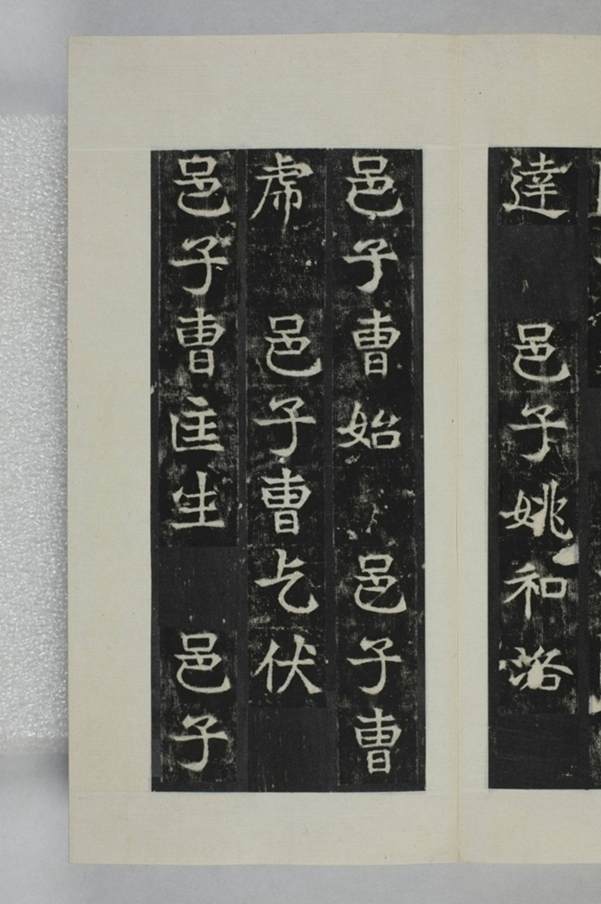 達 邑子姚和洛
邑子曹始 邑子曹
虎 邑子曹乞伏
邑子曹匡生 邑子